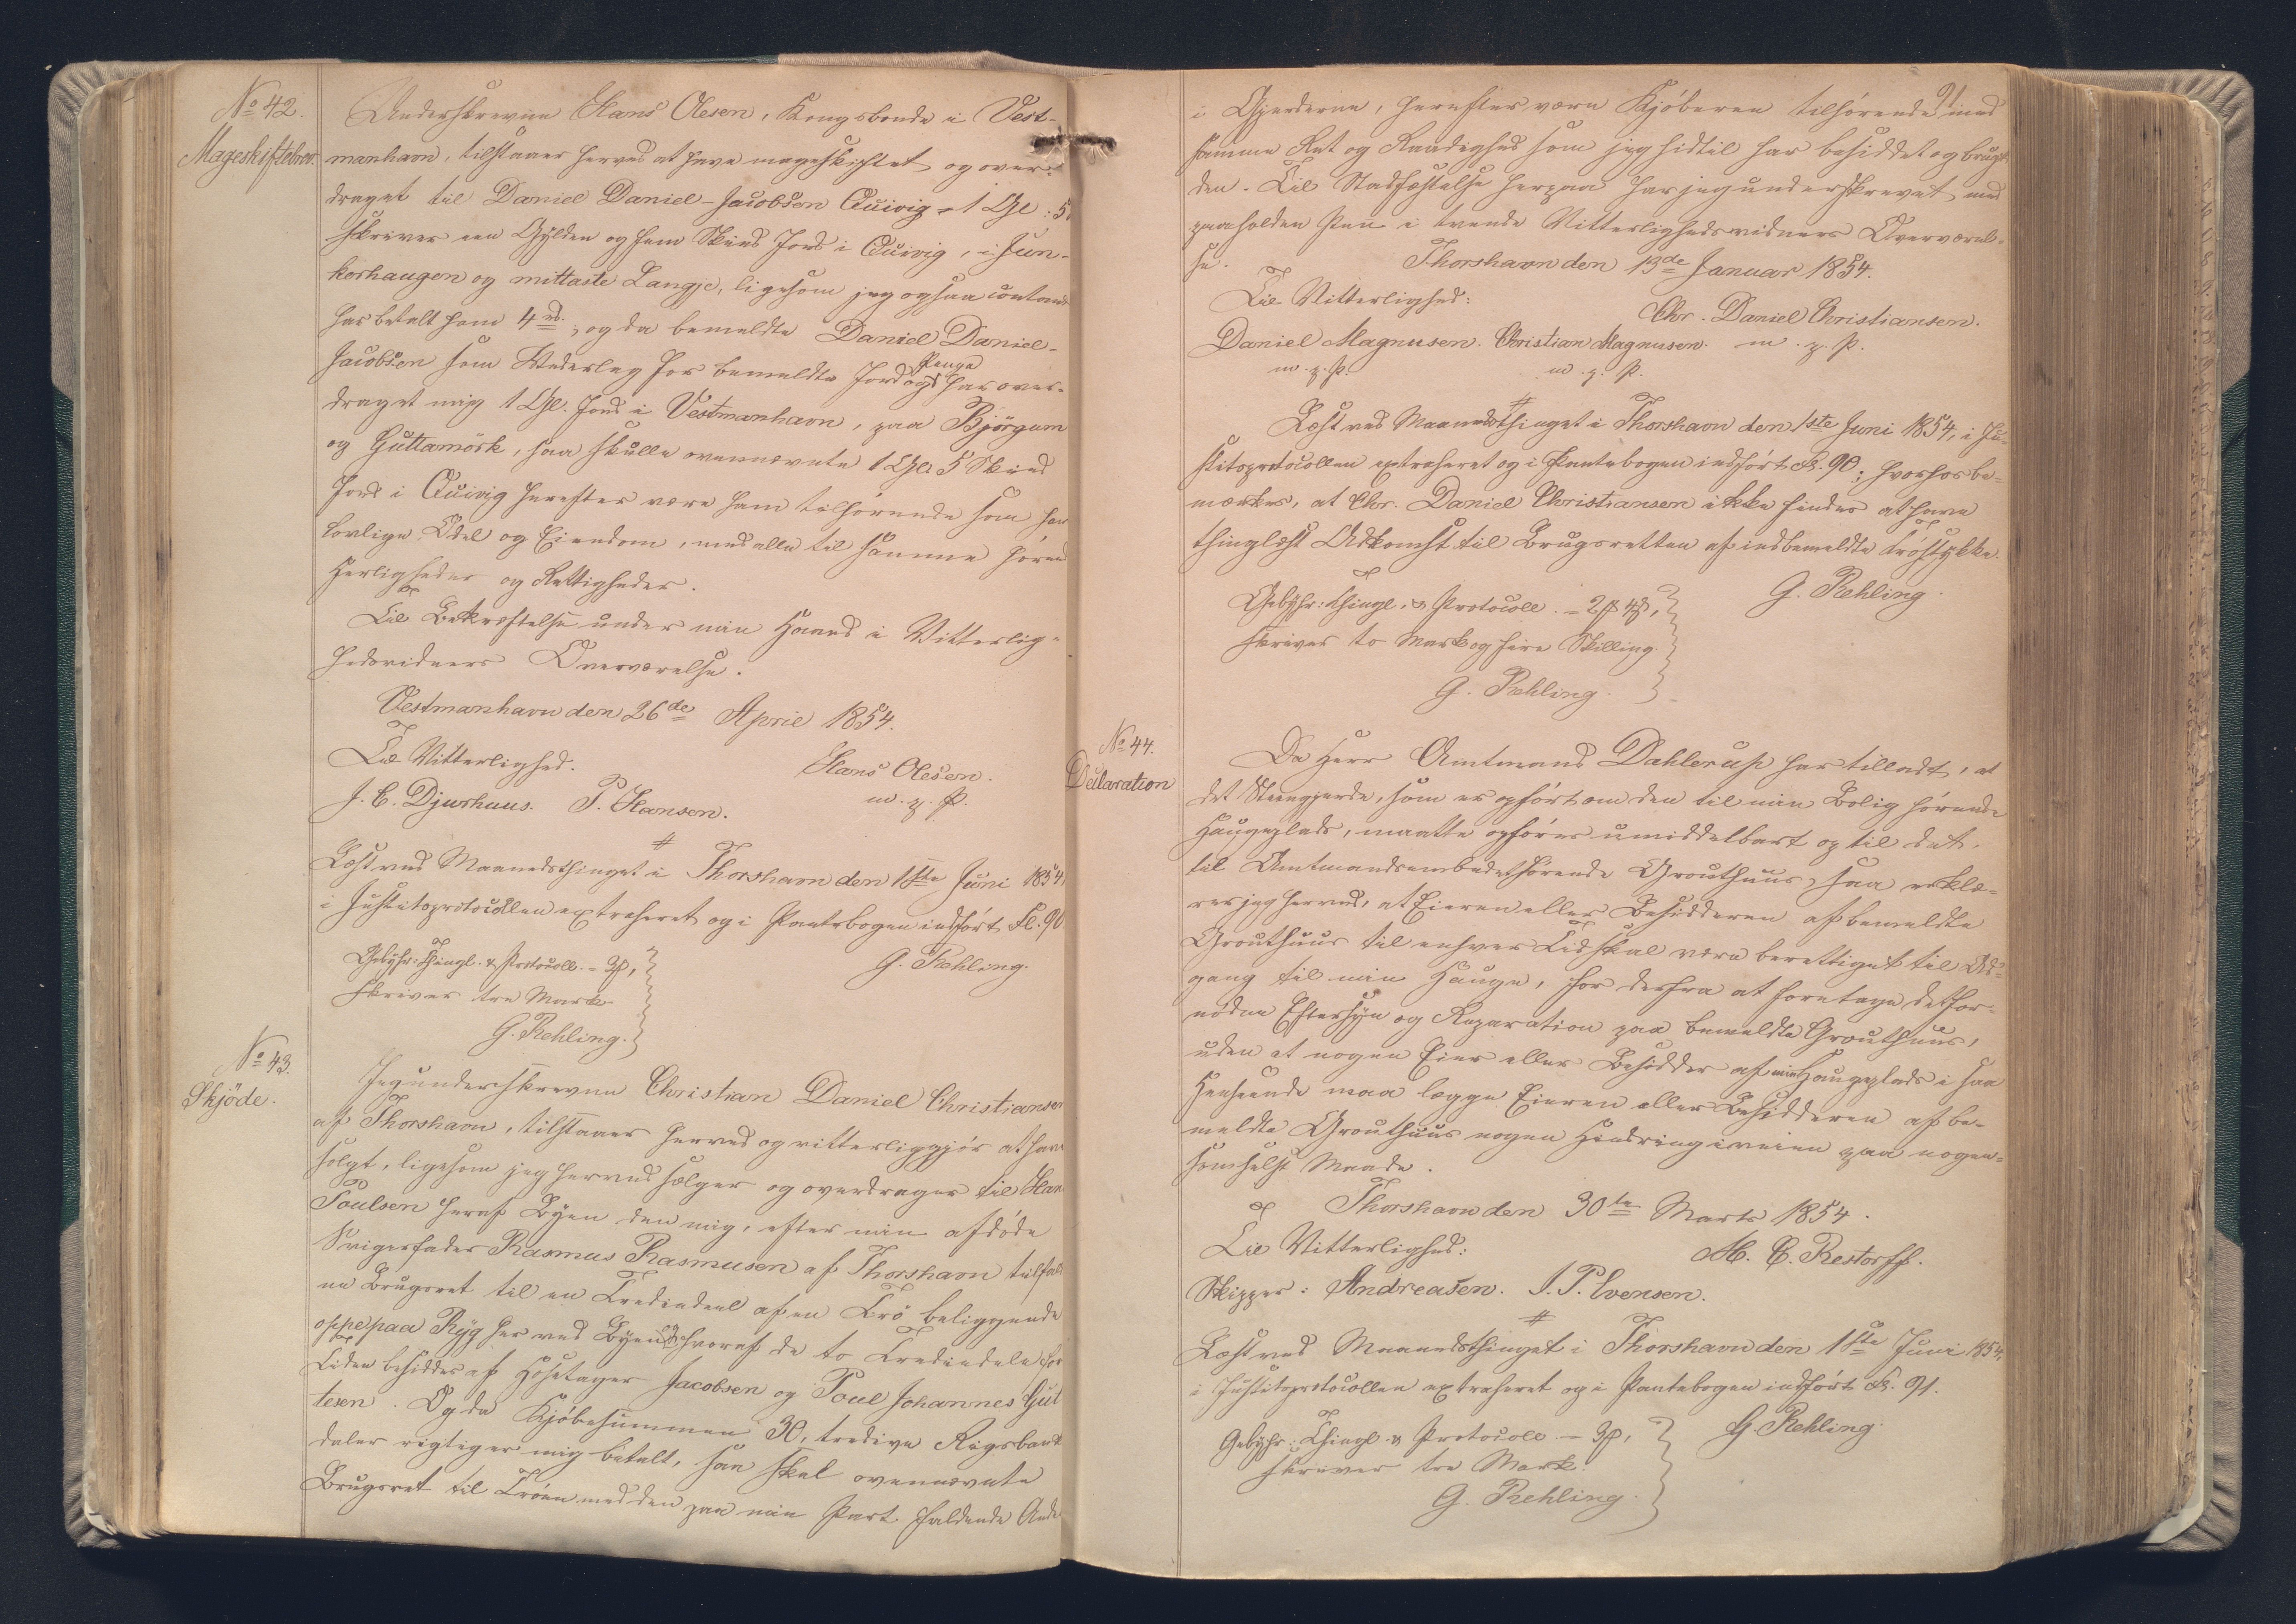 No 42.
Mageskiftebrev.
Underskrevne Hans Olesen, Kongsbonde i Vest-
manhavn, tilstaaer herved at have mageskiftet og over-
draget til Daniel Daniel-Jacobsen Quivig - 1 Gl: 5
skriver een Gylden og fem Skind Jord i Quivig, i Jun-
korhaugen og mittaste Langje, ligesom jeg ogsaa contant
har betalt ham 4 rd., og da bemeldte Daniel Daniel-
Jacobsen som Vederlag for bemeldte Jord og Penge har over-
draget mig 1 Gl. Jord i Vestmanhavn, paa Bjørgum
og Guttamørk, saa skulle ovennævnte 1 Gl. 5 Skind
Jord i Quivig herefter være ham tilhørende som han
lovlige Odel og Eiendom, med alle til samme hørend
Herligheder og Rettigheder.
Til Bekræftelse under min Haand i Vitterlig-
hedsvidners Overværelse.
Vestmanhavn den 26de April 1854.
Til Vitterlighed.
Hans Olesen.
J. C. Djurhuus. P. Hansen.
m. p. P.
#
Læst ved Maanedsthinget i Thorshavn den 1ste Juni 1854,
i Justitsprotocollen extraheret og i Pantebogen indført Fl. 90.
Gebyhr: Thingl. & Protocoll. - 3 ₥,
G. Rehling.
skriver tre Mark.
G. Rehling.
No 43.
Skjöde.
Jeg underskrevne Christian Daniel Christiansen
af Thorshavn, tilstaaer herved og vitterliggjør at have
solgt, ligesom jeg herved sælger og overdrager til Han
Poulsen heraf Byen den mig, efter min afdøde
Svigerfader Rasmus Rasmusen af Thorshavn tilfal
ne Brugsret til en Trediedeel af en Trø beliggende
oppe paa Ryg her ved Byen, hvoraf de to Trediedele for
Tiden besiddes af Hosetager Jacobsen og Poul Johannes Gut
tesen. Og da Kjøbesummen 30, tredive Rigsbank
daler rigtig er mig betalt, saa skal ovennævnte
Brugsret til Trøen med den paa min Part faldende Ande
91
i Gjerderne, herefter være Kjøberen tilhørende med
samme Ret og Raadighed som jeg hidtil har besiddet og brugt
den. Til Stadfæstelse herpaa har jeg underskrevet med
paaholden Pen i tvende Vitterlighedsvidners Overværel-
se.
Thorshavn den 13de Januar 1854.
Til Vitterlighed:
Chr. Daniel Christiansen.
Daniel Magnusen. Christian Magnusen. m. p. P.
m. p. P. m. p. P.
#
Læst ved Maanedsthinget i Thorshavn den 1ste Juni 1854, i Ju-
stitsprotocollen extraheret og i Pantebogen indført Fl. 90; hvorhos be-
mærkes, at Chr. Daniel Christiansen ikke findes at have
thinglæst Adkomst til Brugsretten af indbemeldte Trøstykke.
Gebyhr: Thingl. & Protocoll. - 2 ₥ 4 ß,
G. Rehling.
skriver to Mark og fire Skilling.
G. Rehling.
No 44.
Declaration
Da Herr Amtmand Dahlerup har tilladt, at
det Steengjerde, som er opført om den til min Bolig hørende
Haugeplads, maatte opføres umiddelbart op til det,
til Amtmandsembedet hørende Grouthuus, saa erklæ-
rer jeg herved, at Eieren eller Besidderen af bemeldte
Grouthuus til enhver Tid skal være berettiget til Ad-
gang til min Hauge, for derfra at foretage det for-
nødne Eftersyn og Reparation paa bemeldte Grouthuus,
uden at nogen Eier eller Besidder af min Haugeplads i saa
Henseende maa lægge Eieren eller Besidderen af be-
meldte Grouthuus nogen Hindring i veien paa nogen-
somhelst Maade.
Thorshavn den 30te Marts 1854.
Til Vitterlighed:
M. C. Restorff.
Skipper: Andreasen. J. P. Evensen.
#
Læst ved Maanedsthinget i Thorshavn den 1ste Juni 1854,
i Justitsprotocollen extraheret og i Pantebogen indført Fl. 91.
Gebyhr: Thingl. & Protocoll. - 3 ₥,
G. Rehling.
skriver tre Mark.
G. Rehling.